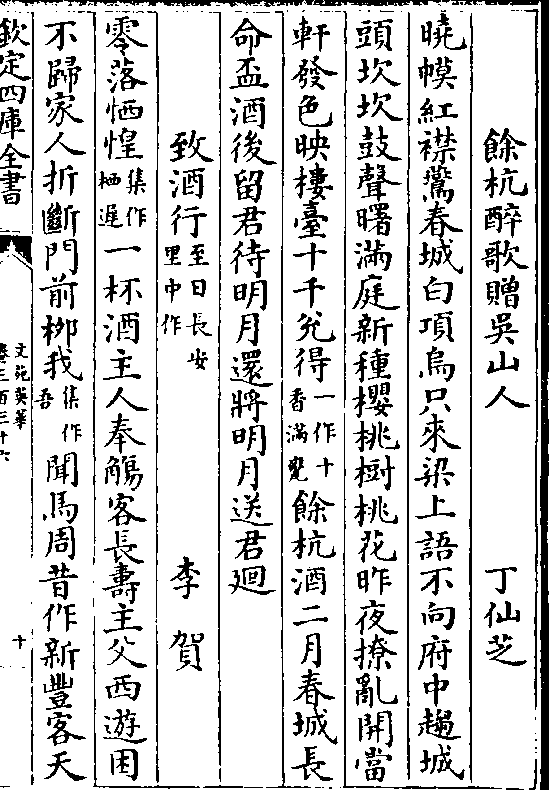 餘杭醉歌贈吳山人 丁仙芝
曉幙紅襟鷰春城白項烏只來梁上語不向府中趨城
頭坎坎鼓聲曙滿庭新種櫻桃樹桃花昨夜撩亂開當
軒發色映樓臺十千兊得一作十香滿甕餘杭酒二月春城長
命盃酒後留君待明月還將明月送君廻
致酒行至日長安里中作 李賀
零落恓惶集作栖遲一杯酒主人奉觴客長壽主父西遊困
不歸家人折斷門前栁我集作吾聞馬周昔作新豐客天
欽定四庫全書
文苑英華
卷三百三十六
十